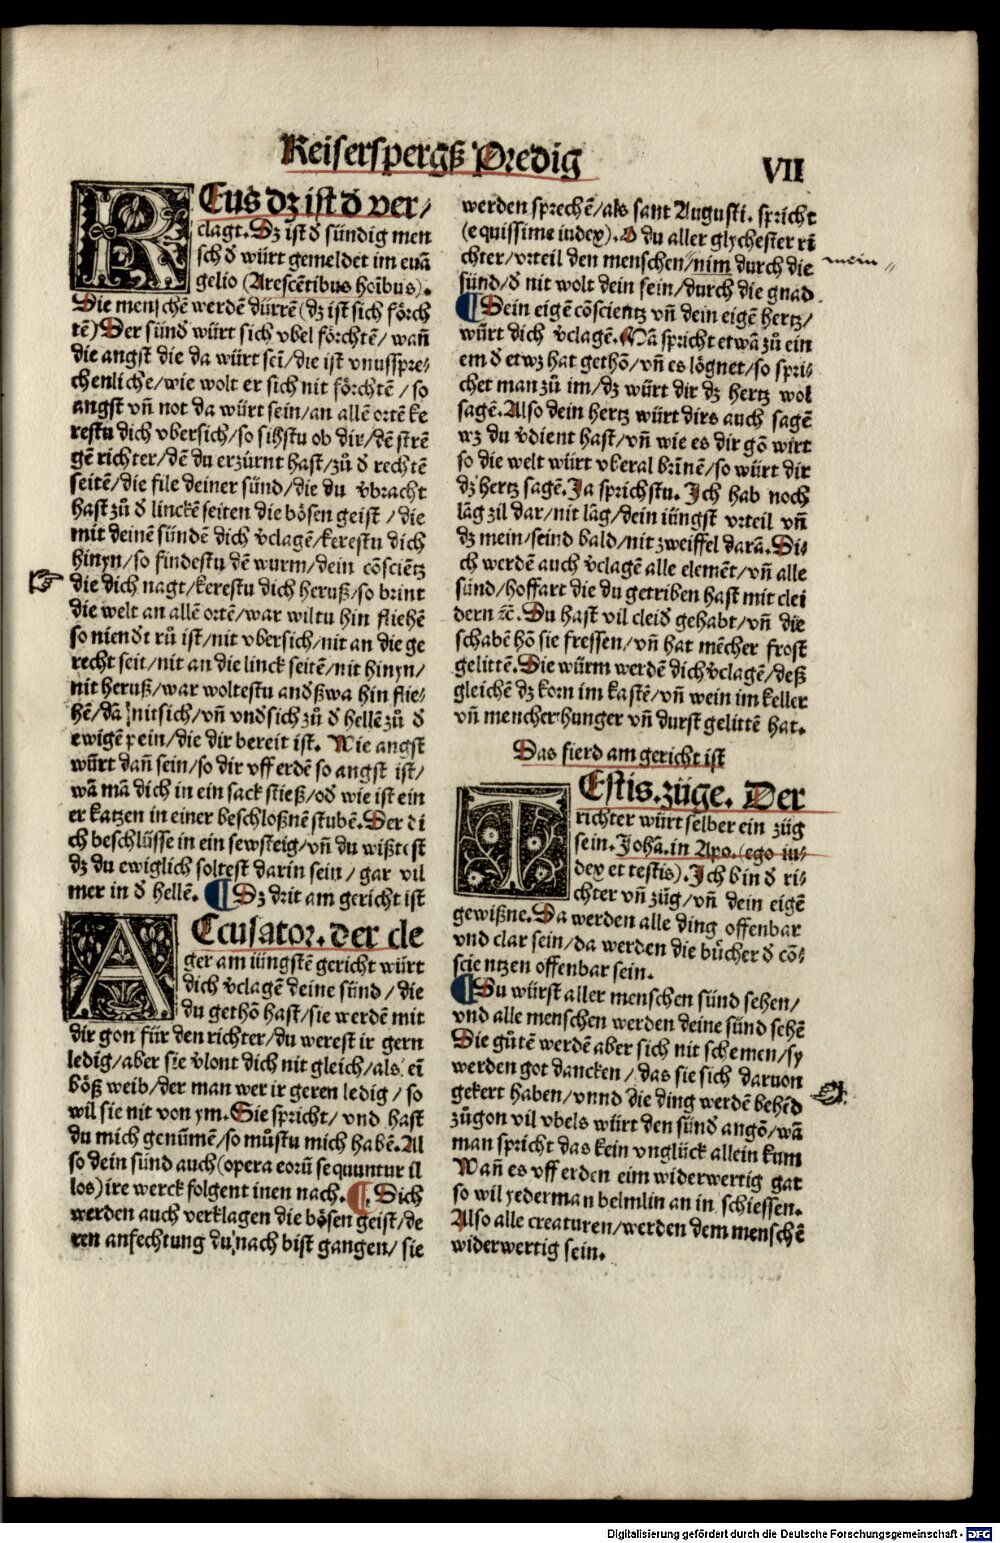 Keiserspergß Predig
VII
REus dz ist đ ver/
clagt. Dz ist đ sündig men
sch đ würt gemeldet im euā
gelio (Arescētibus hoībus).
Die menschē werdē dürrē (dz ist sich förch
tē) Der sünđ würt sich vbel förchtē/ wañ
die angst die da würt seī/die ist vnusspre⸗
chenliche/wie wolt er sich nit förchtē/so
angst vñ not da würt sein/an allē ortē ke
restu dich vbersich/so sihstu ob dir/dē strē
gē richter/dē du erzürnt hast/zů đ rechtē
seitē/die file deiner sünd/die du v̄bracht
hast zů đ linckē seiten die bösen geist/die
mit deinē sündē dich v̄clagē/kerestu dich
hinyn/so findestu dē wurm/dein cōsciētz
die dich nagt/kerestu dich heruß/so brint
die welt an allē ortē/war wiltu hin fliehē
so niendt rů ist/nit vbersich/nit an die ge
recht seit/nit an die linck seitē/nit hinyn/
nit heruß/war woltestu andßwa hin flie⸗
hē/dā nitsich/vñ vnđsich zů đ hellē zů đ
ewigē pein/die dir bereit ist. Wie angst
würt dañ sein/so dir vff erdē so angst ist/
wā mā dich in ein sack stieß/ođ wie ist ein
er katzen in einer beschloßnē stubē. Der di
ch beschlüsse in ein sewsteig/vñ du wißtest
dz du ewiglich soltest darin sein/gar vil
mer in đ hellē. ¶ Dz drit am gericht ist
ACcusator. der cle
ger am iüngstē gericht würt
dich v̄clagē deine sünd/die
du gethō hast/sie werdē mit
dir gon für den richter/du werest ir gern
ledig/aber sie v̄lont dich nit gleich/als eī
böß weib/der man wer ir geren ledig/so
wil sie nit von ym. Sie spricht/vnd hast
du mich genūmē/so můstu mich habē. Al
so dein sünd auch (opera eorū sequuntur il
los) ire werck folgent inen nach. ¶. Dich
werden auch verklagen die bösen geist/de
ren anfechtung du nach bist gangen/sie
werden sprechē/als sant Augusti. spricht
(equissime iudex). O du aller glychester ri
chter/vrteil den menschen/nim durch die
mein
sünd/đ nit wolt dein sein/durch die gnad.
¶ Dein eigē cōscientz vñ dein eigē hertz/
würt dich v̄clagē. Mā spricht etwā zů ein
em đ etwz hat gethō/vñ es lögnet/so spri⸗
chet man zů im/dz würt dir dz hertz wol
sagē. Also dein hertz würt dirs auch sagē
wz du v̄dient hast/vñ wie es dir gō wirt
so die welt würt vberal brīnē/so würt dir
dz hertz sagē. Ja sprichstu. Ich hab noch
lāg zil dar/nit lāg/dein iüngst vrteil vñ
dz mein/seind bald/nit zweiffel darā. Di⸗
ch werdē auch v̄clagē alle elemēt/vñ alle
sünd/hoffart die du getriben hast mit clei
dern ꝛē. Du hast vil cleid gehabt/vñ die
schabē hō sie fressen/vñ hat mēcher frost
gelittē. Die würm werdē dich v̄clagē/deß
gleichē dz korn im kastē/vñ wein im keller
vñ mencher hunger vñ durst gelittē hat.
Das fierd am gericht ist
TEstis. züge. Der
richter würt selber ein züg
sein. Johā. in Apo. (ego iu⸗
dex et testis). Ich bin đ ri⸗
chter vñ züg/vñ dein eigē
gewißne. Da werden alle ding offenbar
vnd clar sein/da werden die bücher đ cō⸗
scientzen offenbar sein.
¶ Du würst aller menschen sünd sehen/
vnd alle menschen werden deine sünd sehē
Die gůtē werdē aber sich nit schemen/sy
werden got dancken/das sie sich daruon
gekert haben/vnnd die ding werdē behēd
zůgon vil vbels würt den sünđ angō/wā
man spricht das kein vnglück allein kum
Wañ es vff erden eim widerwertig gat
so wil yederman helmlin an in schiessen.
Also alle creaturen/werden dem menschē
widerwertig sein.
Digitalisierung gefördert durch die Deutsche Forschungsgemeinschaft - DFG